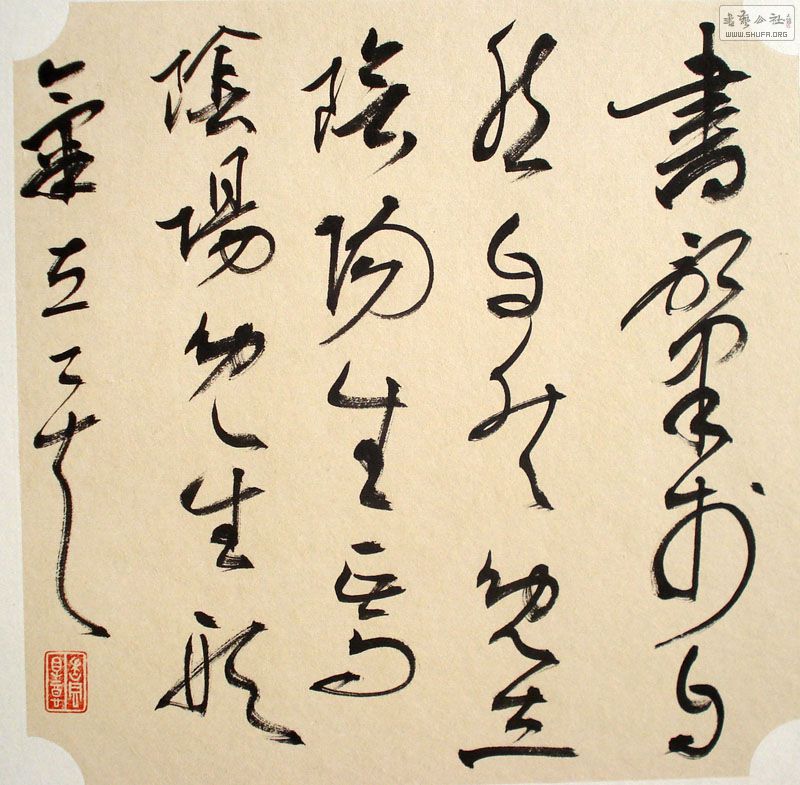 書肇於自
然自然既立
陰陽生焉
陰陽既生形
氣立矣
書藝公社
WWW.SHUFA.ORG